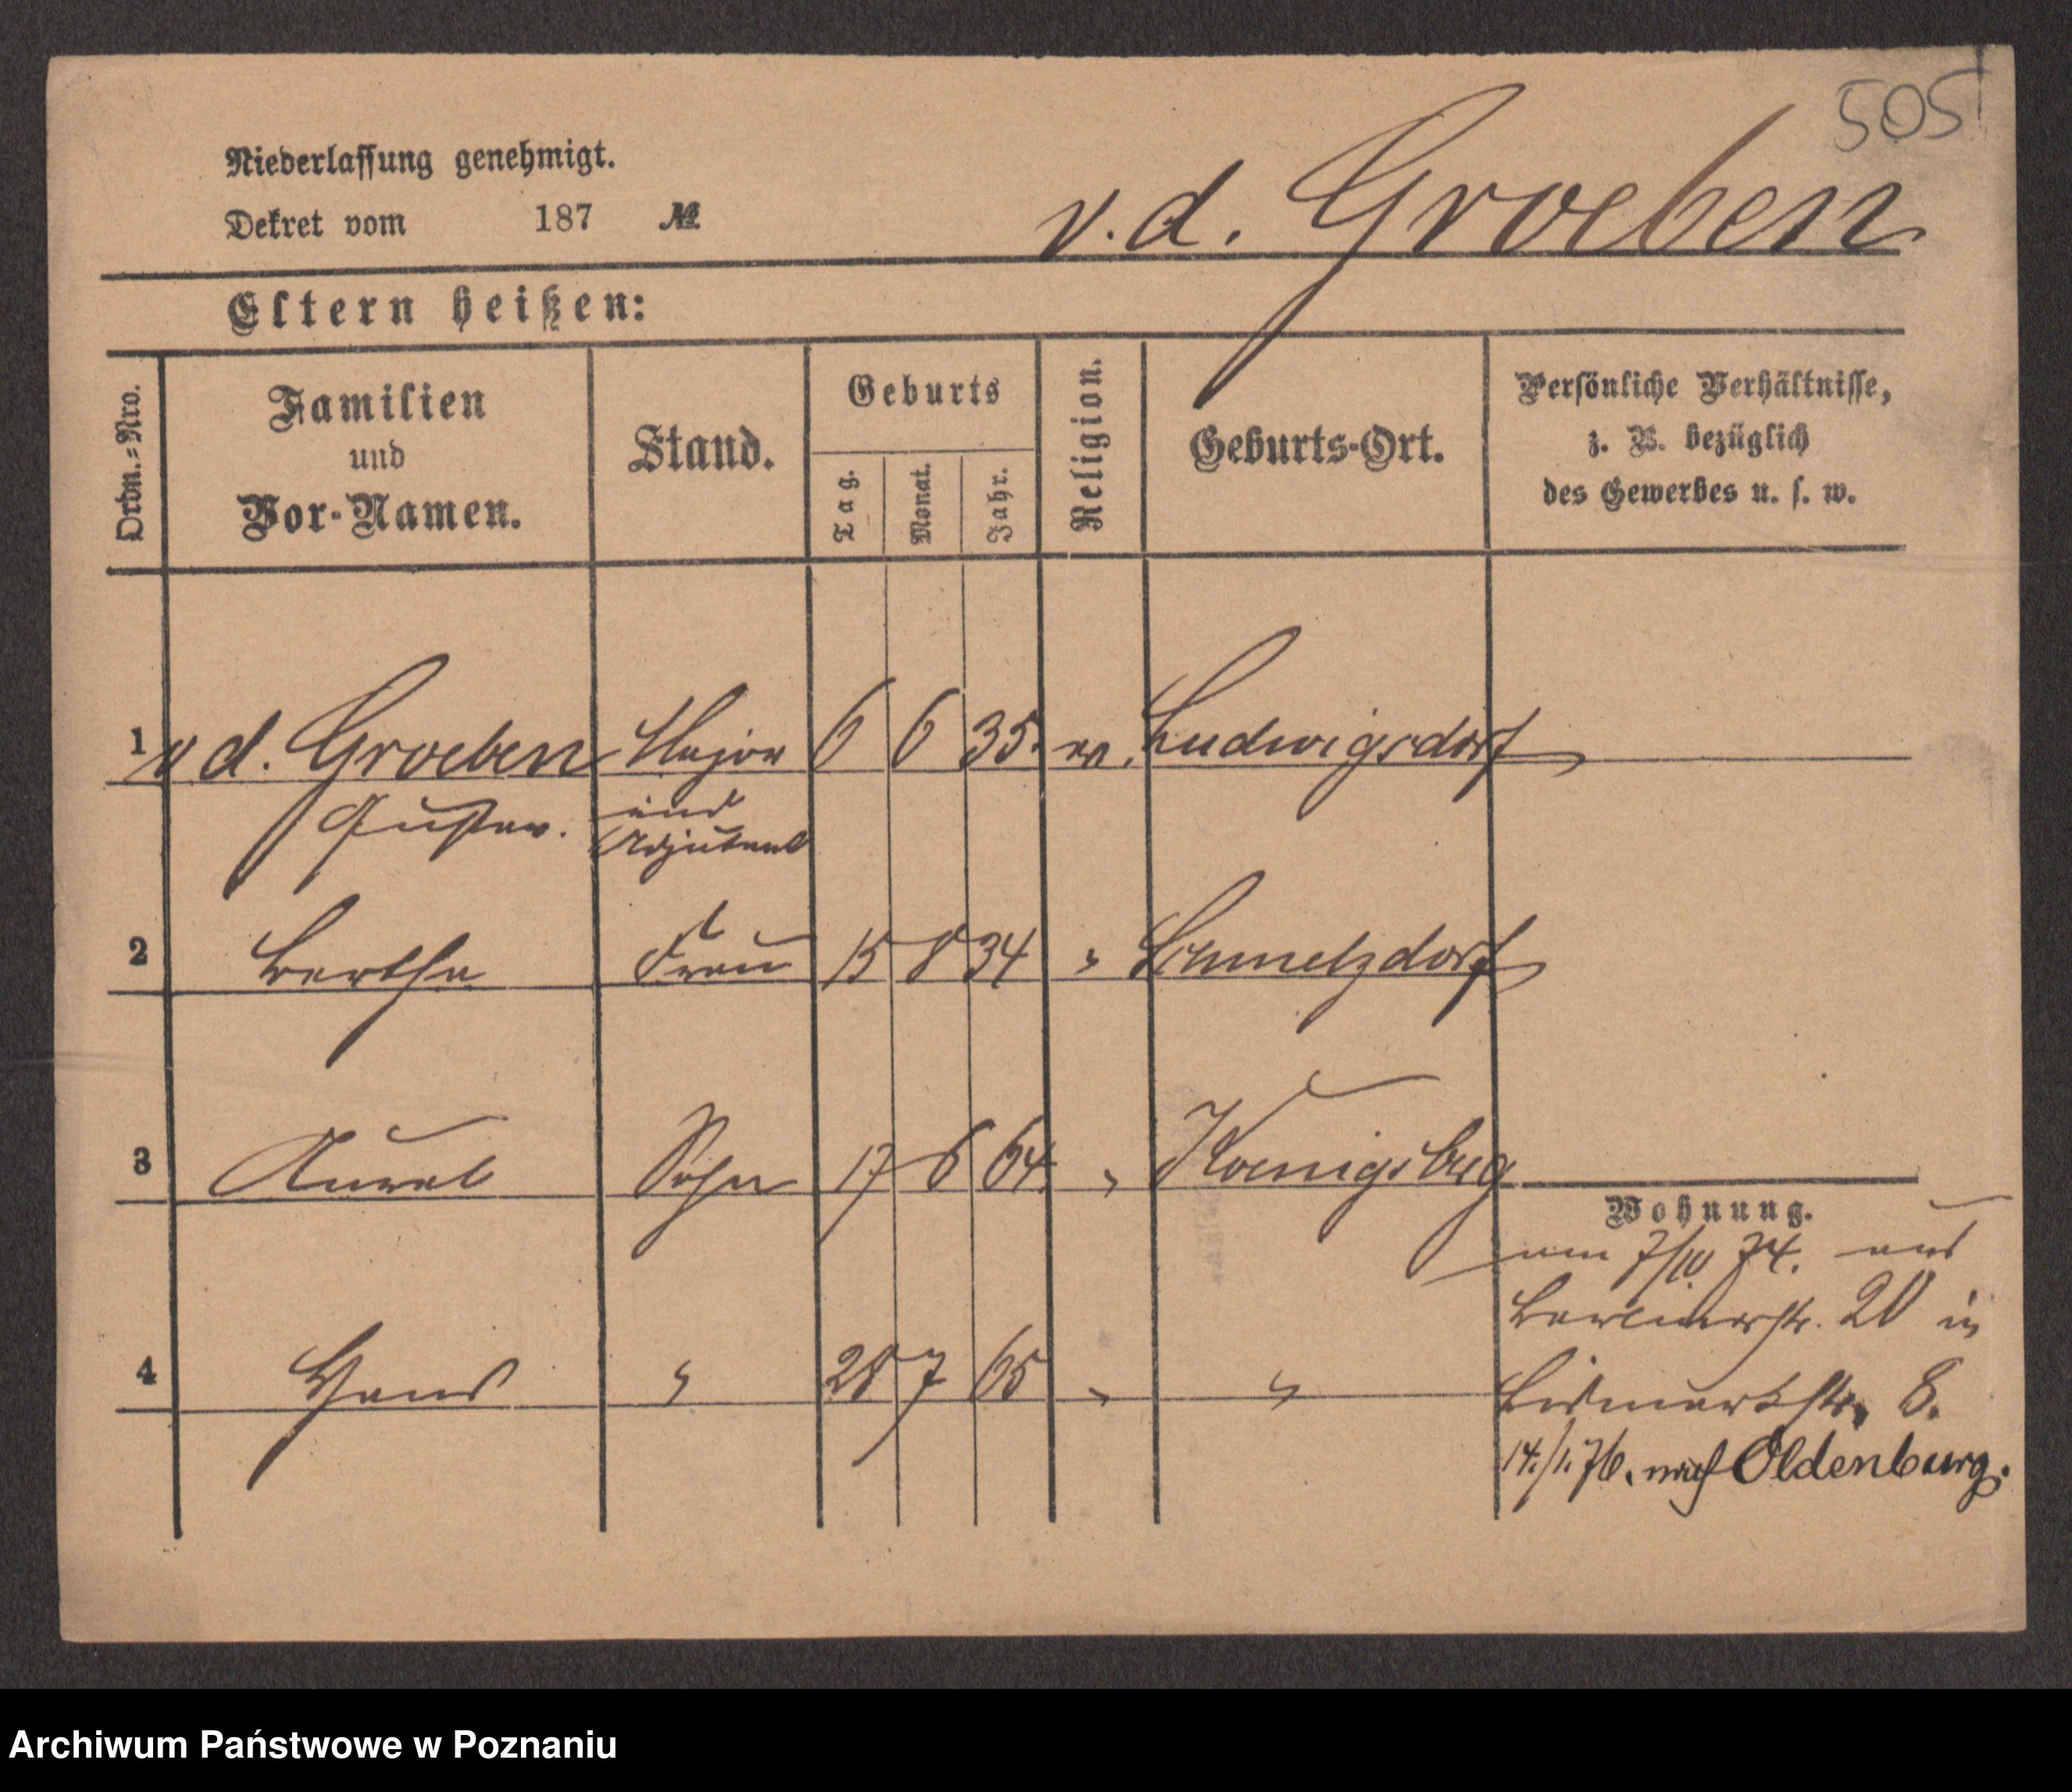 505
Niederlassung genehmigt.
Dekret vom 187 №
v. d. Groeben
Eltern heißen:
Ordn.=Nro.
Familien
und
Vor-Namen.
Stand.
Geburts
Tag.
Monat.
Jahr.
Religion.
Geburts-Ort.
Persönliche Verhältnisse,
z. B. bezüglich
des Gewerbes u. s. w.
1 v d. Groeben Major 6 6 35. ev. Ludwigsdorf
Gustav. und
Adjutant
2 Bertha Frau 15 8 34 " Schmelzdorf
3 Aurel Sohn 17 6 64. " Koenigsberg
Wohnung.
am 7/IV 74. aus
Berlinerstr. 20 in
4 Hans " 28 7 65 " "
Bismarkstr. 8.
14./1.76. nach Oldenburg.
Archiwum Państwowe w Poznaniu